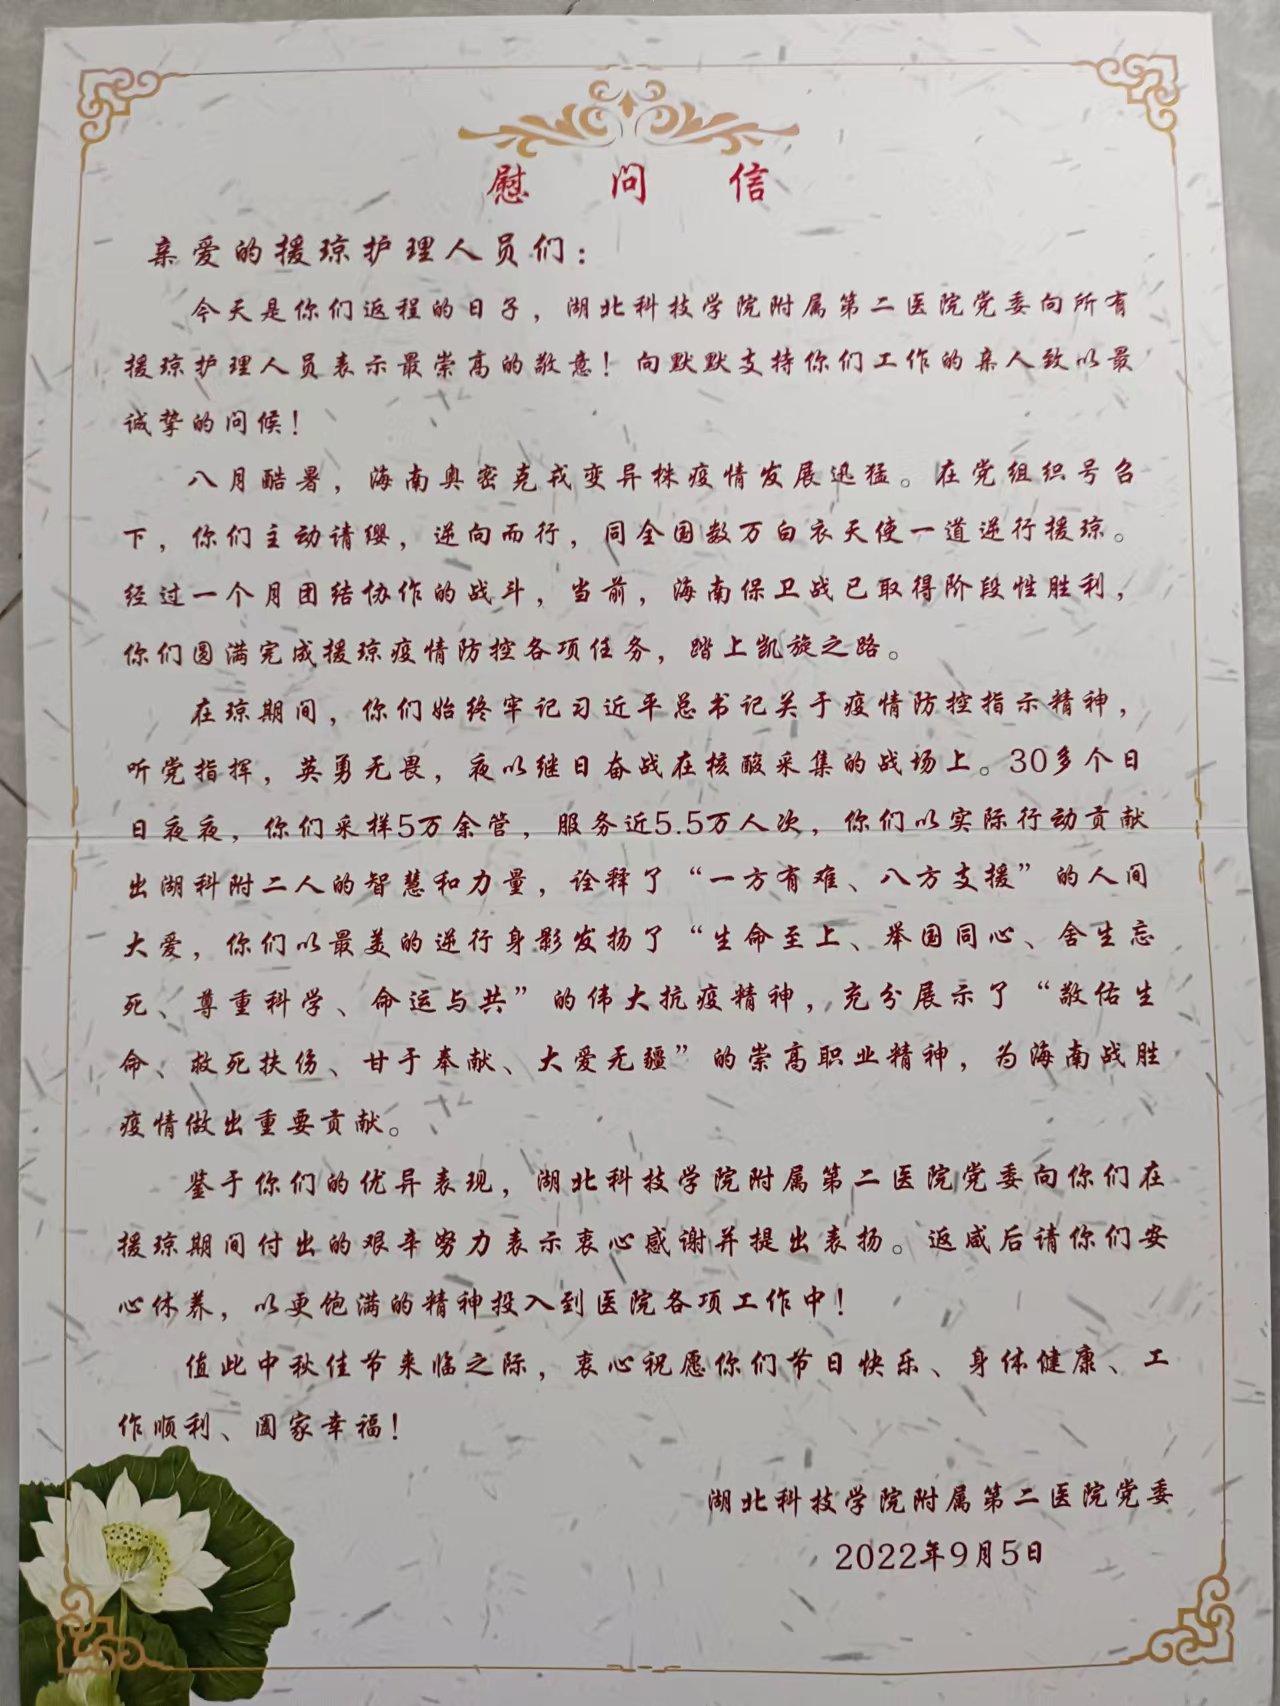 慰问信
亲爱的援琼护理人员们：
今天是你们返程的日子，湖北科技学院附属第二医院党委向所有
援琼护理人员表示最崇高的敬意！向默默支持你们工作的亲人致以最
诚挚的问候！
八月酷暑，海南奥密克戎变异株疫情发展迅猛。在党组织号召
下，你们主动请缨，逆向而行，同全国数万白衣天使一道逆行援琼。
经过一个月团结协作的战斗，当前，海南保卫战已取得阶段性胜利，
你们圆满完成援琼疫情防控各项任务，踏上凯旋之路。
在琼期间，你们始终牢记习近平总书记关于疫情防控指示精神，
听党指挥，英勇无畏，夜以继日奋战在核酸采集的战场上。30多个日
日夜夜，你们采样5万余管，服务近5.5万人次，你们以实际行动贡献
出湖科附二人的智慧和力量，诠释了“一方有难、八方支援”的人间
大爱，你们以最美的逆行身影发扬了“生命至上、举国同心、舍生忘
死、尊重科学、命运与共”的伟大抗疫精神，充分展示了“敬佑生
命、救死扶伤、甘于奉献、大爱无疆”的崇高职业精神，为海南战胜
疫情做出重要贡献。
鉴于你们的优异表现，湖北科技学院附属第二医院党委向你们在
援琼期间付出的艰辛努力表示衷心感谢并提出表扬。返咸后请你们安
心休养，以更饱满的精神投入到医院各项工作中！
值此中秋佳节来临之际，衷心祝愿你们节日快乐、身体健康、工
作顺利、阖家幸福！
湖北科技学院附属第二医院党委
2022年9月5日